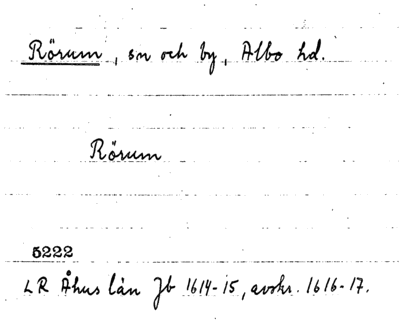 Rörum, sn och by, Albo hd.
Rörum
5222
LR Åhus län Jb 1614-15, avskr. 1616-17.